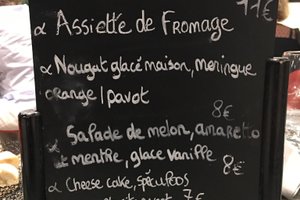 ∝ Assiette de Fromage 11€
∝ Nougat glacé maison, meringue
orange / pavot
8€
∝ Salade de melon, amaretto
et menthe, glace vanille 8€
∝ Cheese cake, spéculoos
7€